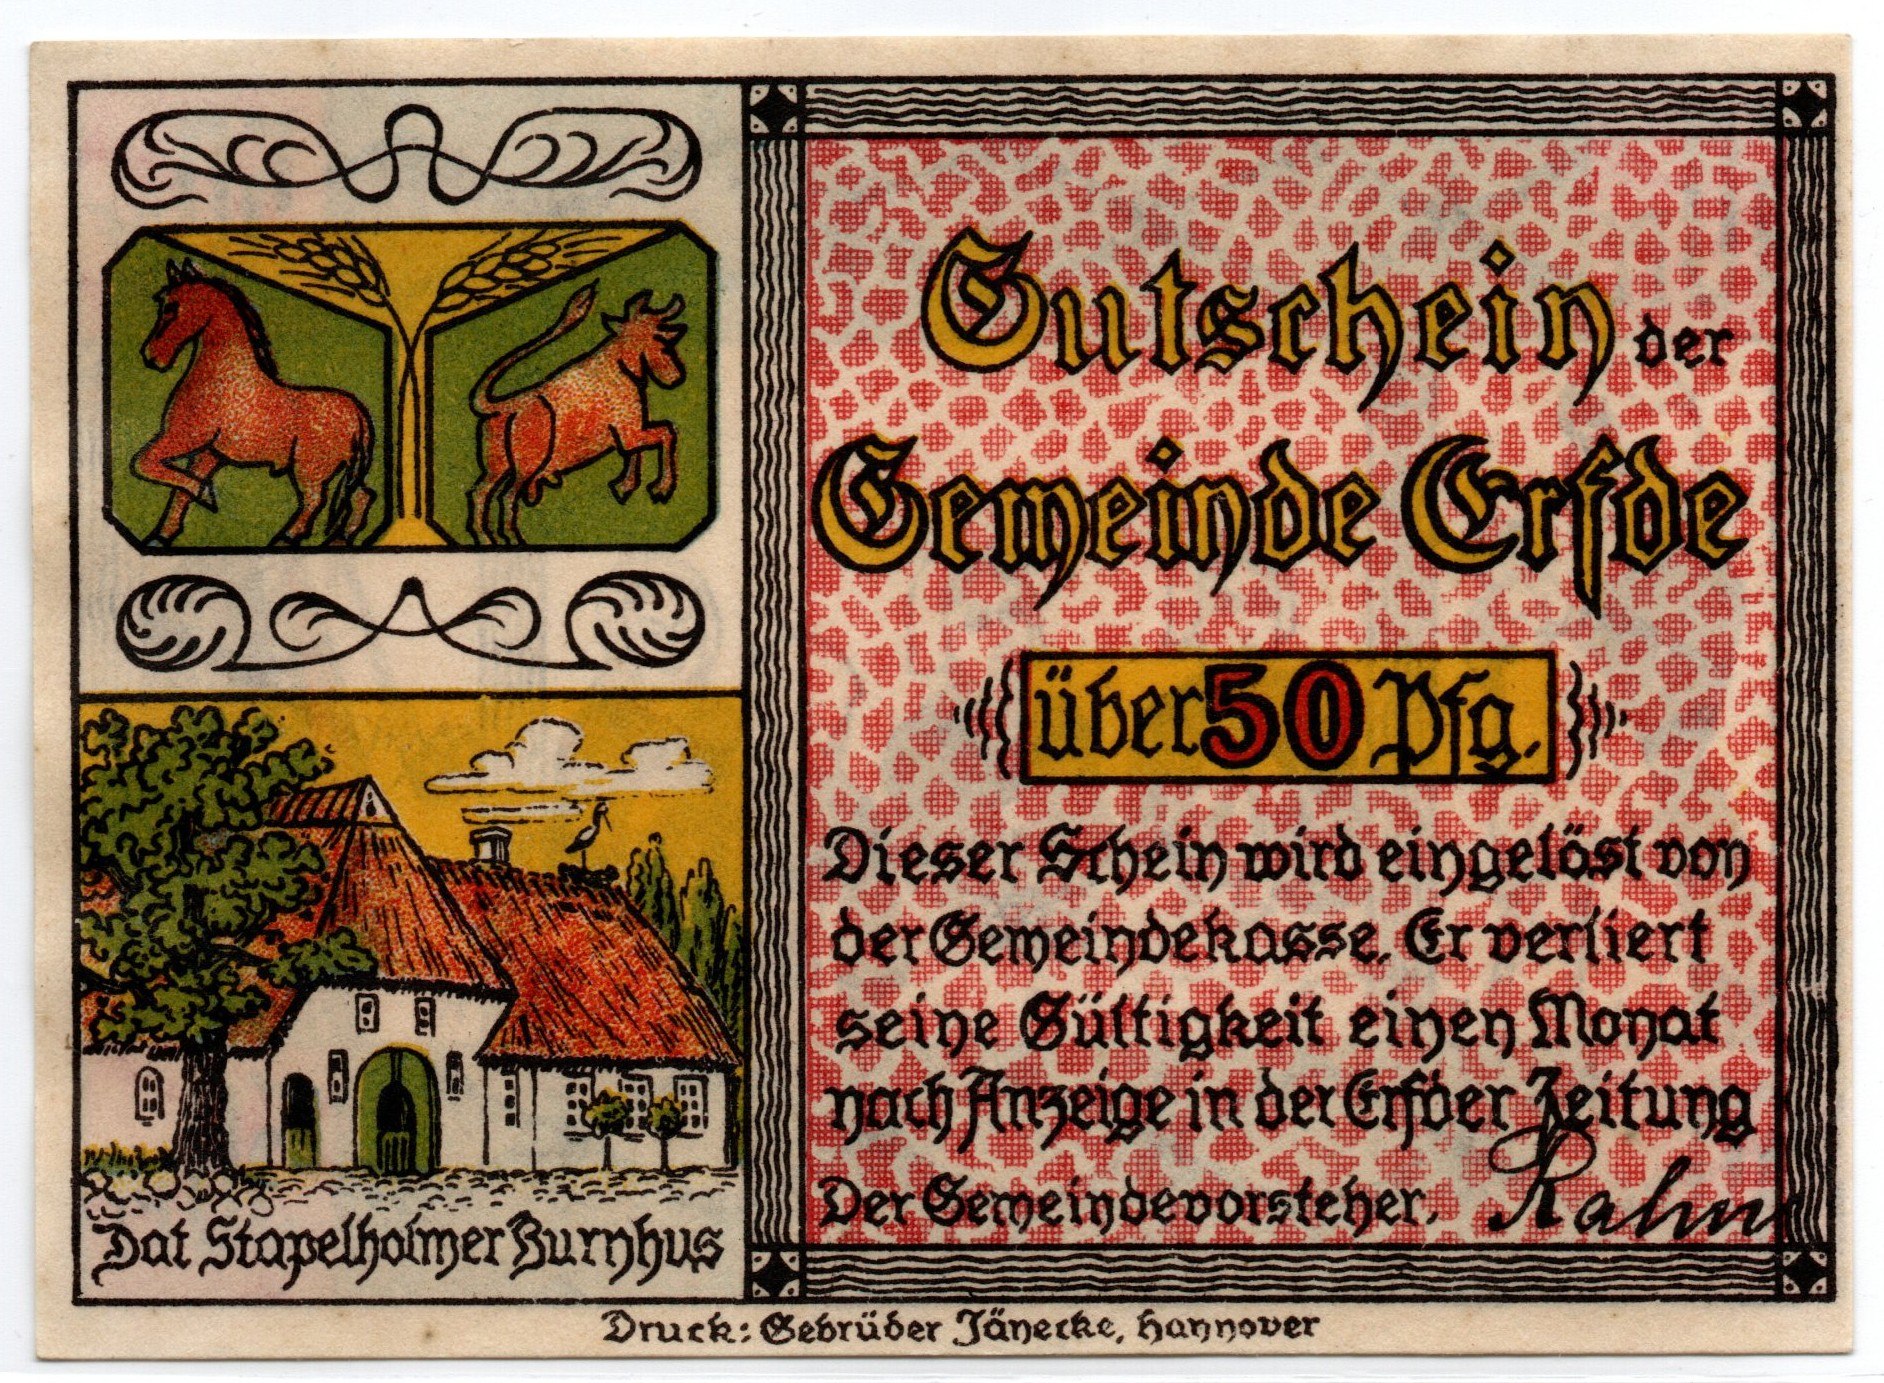 Gutschein der
Gemeinde Erfde
über 50 Pfg.
Dieser Schein wird eingelöst von
der Gemeindekasse. Er verliert
seine Gültigkeit einen Monat
nach Anzeige in der Erfder Zeitung
Der Gemeindevorsteher. Rahn
Dat Stapelholmer Burnhus
Druck: Gebrüder Jänecke, Hannover